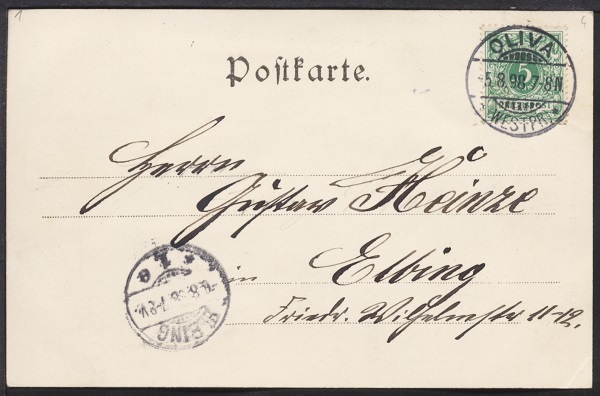 1
4
Postkarte.
OLIVA
5
-5.8.98.7-8N
REICHSPOST
* (WESTPR.) *
Herrn
Gustav Heinze
in Elbing
Friedr. Wilhelmstr 11-12.
ELBING
-6.8.98.7-8V.
* 1 e